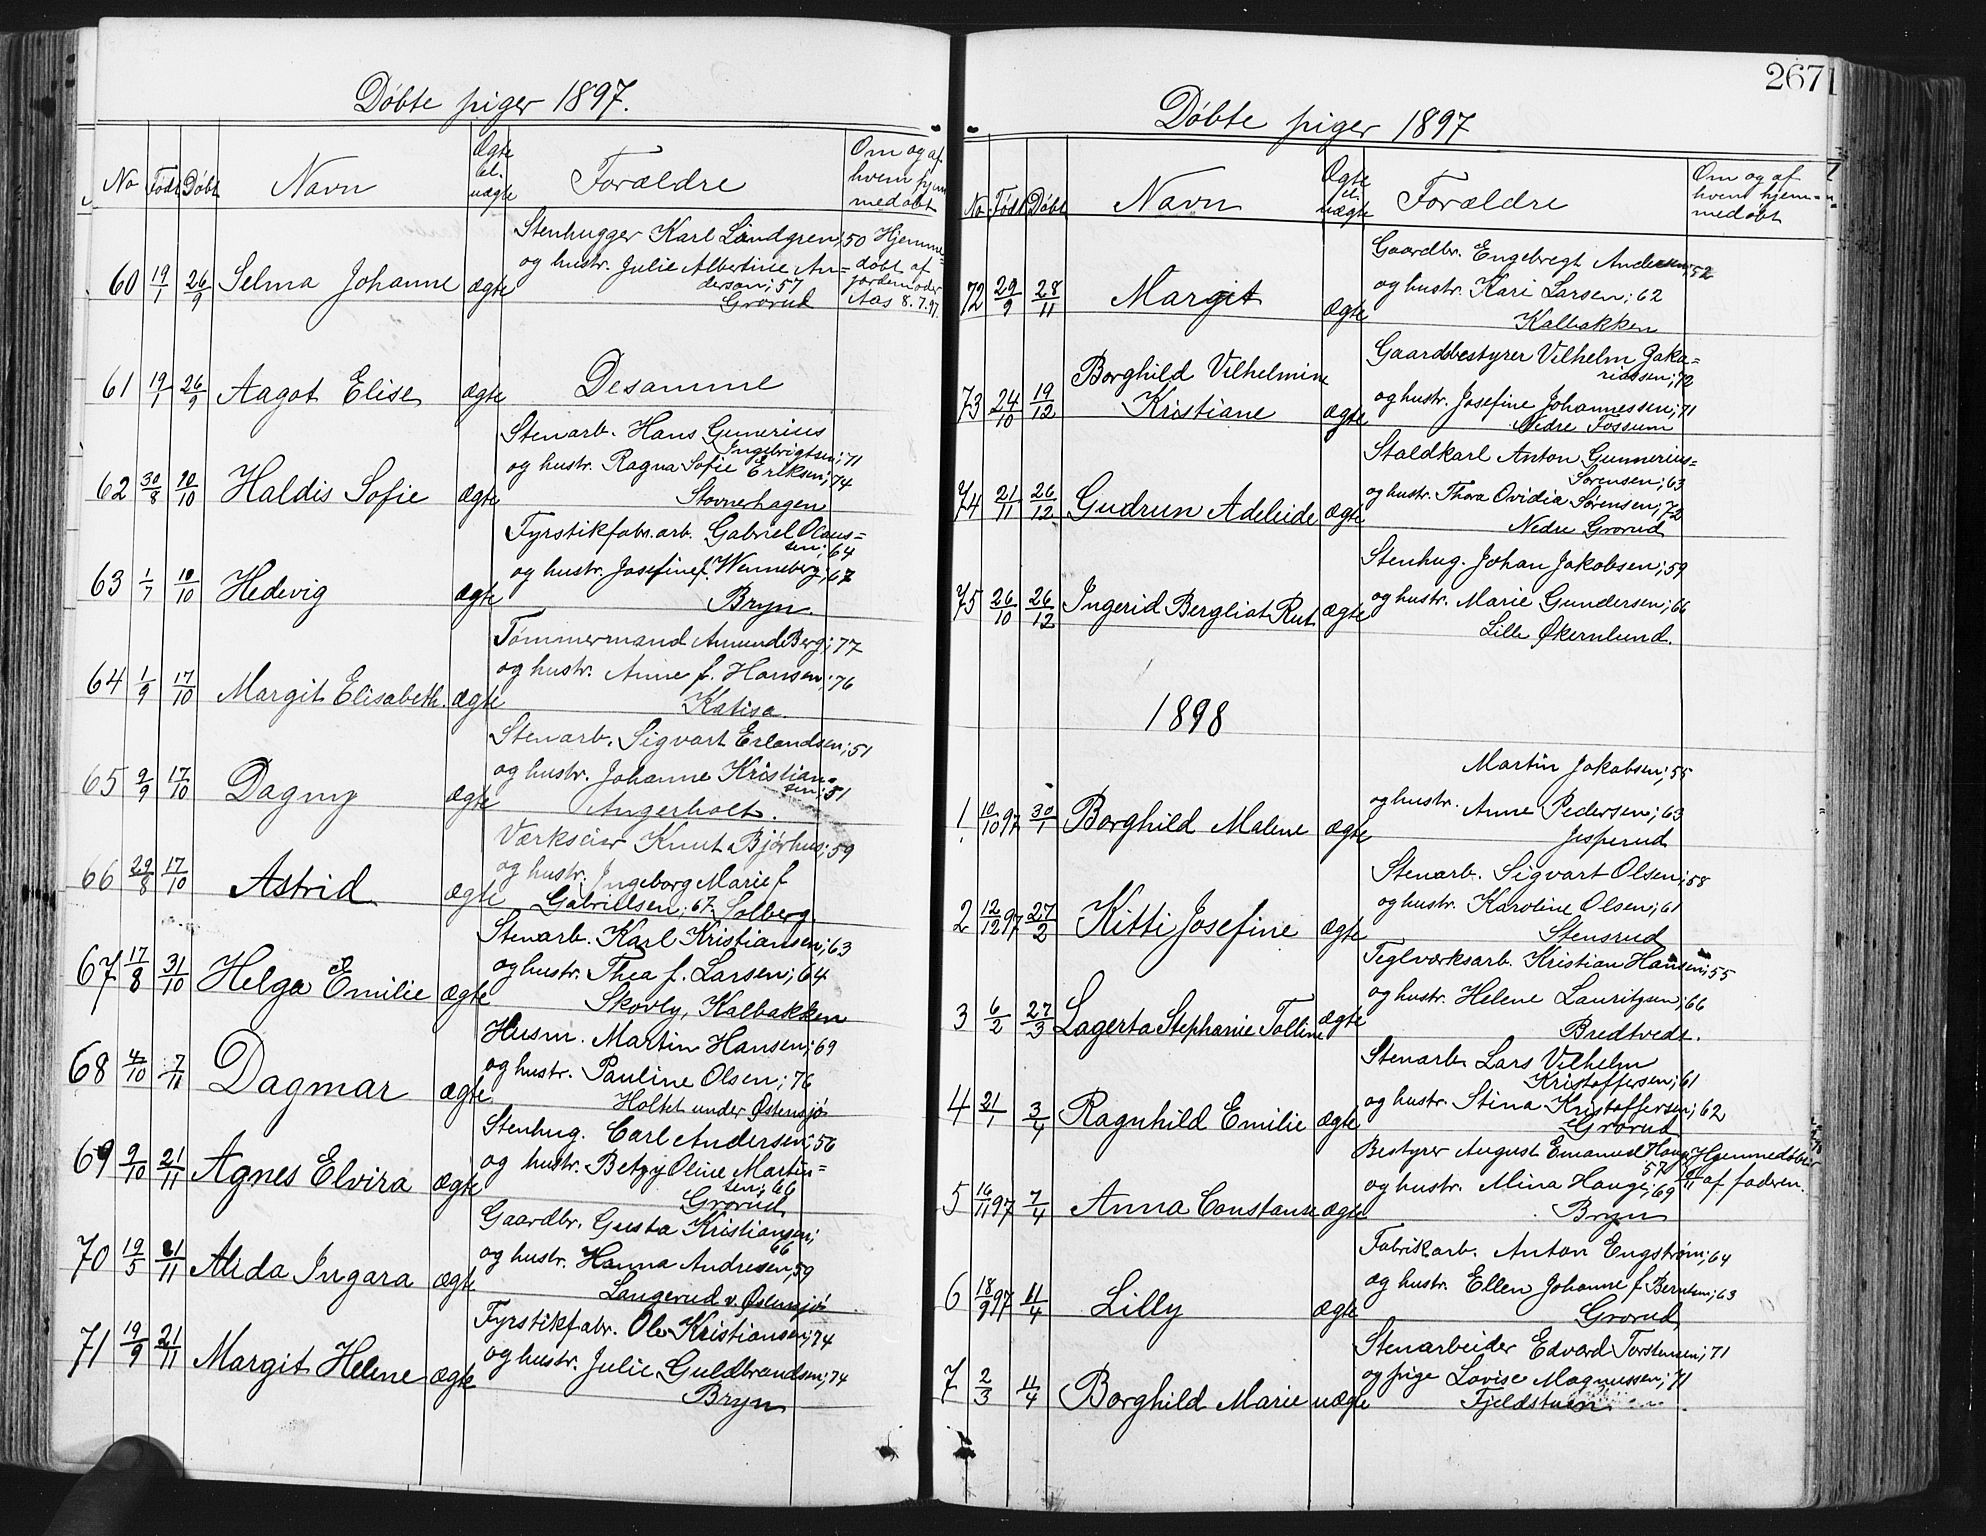 Døbte piger 1897.
No Født Døbt Navn Ægte el. uægte Forældre Om og af hvem hjem medøbt
Stenhugger Karl Lindgren; 50 Hjemme=
60 19/7 26/9 Selma Johanne ægte og hustr. Julie Albertine An= døbt af
derson; 57 jordemoder
Grorud Aas 8.7.97.
61 19/7 26/9 Aagot Elise ægte Desamme
Stenarb. Hans Gunerius
Ingebrigtsen; 71
62 30/8 10/10 Haldis Sofie ægte og hustr. Ragna Sofie Eriksen; 74
Stovnerhagen
Fyrstikfabr. arb. Gabriel Olaus=
sen; 64
63 1/7 10/10 Hedevig ægte og hustr. Josefine f. Wenneberg; 67
Bryn.
Tømmermand Amund Berg; 77
64 1/9 17/10 Margit Elisabeth. ægte og hustr. Anne f. Hansen; 76
Katisa.
Stenarb. Sigvart Erlandsen; 51
65 2/9 17/10 Dagny ægte og hustr. Johanne Kristian=
sen; 51
Angerholt.
Værkseier Knut Bjørhus; 59
66 29/8 17/10 Astrid ægte og hustr. Ingeborg Marie f
Gabrielsen; 67. Solberg.
Stenarb. Karl Kristiansen; 63
67 17/8 31/10 Helga Emilie ægte og hustr. Thea f. Larsen; 64
Skovly, Kalbakken
Husm. Martin Hansen; 69
68 4/10 7/11 Dagmar ægte og hustr. Pauline Olsen; 76
Holtet under Østensjø
Stenhug. Carl Andersen; 56
69 9/10 21/11 Agnes Elvira ægte og hustr. Betzy Oline Martin=
sen; 66
Grorud
Gaardbr. Gusta Kristiansen;
66
70 19/5 21/11 Alida Ingara ægte og hustr. Hanna Andresen, 59
Langerud v. Østensjø
Fyrstikfabr. Ole Kristiansen; 74
71 19/9 21/11 Margit Helene ægte og hustr. Julie Guldbrandsen; 74
Bryn
267
Døbte piger 1897
No Født Døbt Navn Ægte el. uægte Forældre Om og af hvem hjem= medøbt
Gaardbr. Engebregt Andersen; 52
72 29/9 28/11 Margit ægte og hustr. Kari Larsen; 62
Kalbakken
Gaardsbestyrer Vilhelm Zaka=
riassen; 72
73 24/10 19/12 Borghild Vilhelmine Kristiane ægte og hustr. Josefine Johannessen; 71
Nedre Fossum
Staldkarl Anton Gunnerius=
Sørensen; 63
74 21/11 26/12 Gudrun Adeleide ægte og hustr. Thora Ovidia Sørensen; 72
Nedre Grorud
Stenhug. Johan Jakobsen; 59
75 26/10 26/12 Ingerid Bergliot Rut ægte og hustr. Marie Gundersen; 66
Lille Økernlund.
1898
Martin Jakobsen; 55
1 10/10 97 30/1 Borghild Malene ægte og hustr. Anne Pedersen; 63
Jesperud
Stenarb. Sigvart Olsen; 58
2 12/12 97 27/2 Kitti Josefine ægte og hustr. Karoline Olsen; 61
Stensrud
Teglværksarb. Kristian Hansen; 55
3 6/2 27/3 Lagerta Stephanie Tolline ægte og hustr. Helene Lauritzen; 66
Bredtvedt.
Stenarb. Lars Vilhelm
Kristoffersen; 61
4 21/1 3/4 Ragnhild Emilie ægte og hustr. Stina Kristoffersen; 62
Grorud
Bestyrer August Emanuel Hauge Hjemmedøbt
57
5 16/11 97 7/4 Anna Constanse ægte og hustr. Mina Hauge; 69 af faderen.
Bryn
Fabrikarb. Anton Engstrøm; 64
6 18/9 97 11/4 Lilly ægte og hustr. Ellen Johanne f. Berntsen; 63
Grorud,
Stenarbeider Edvard Torstensen; 71
7 2/3 11/4 Borghild Marie uægte og pige Lovise Magnussen; 71
Fjeldstuen